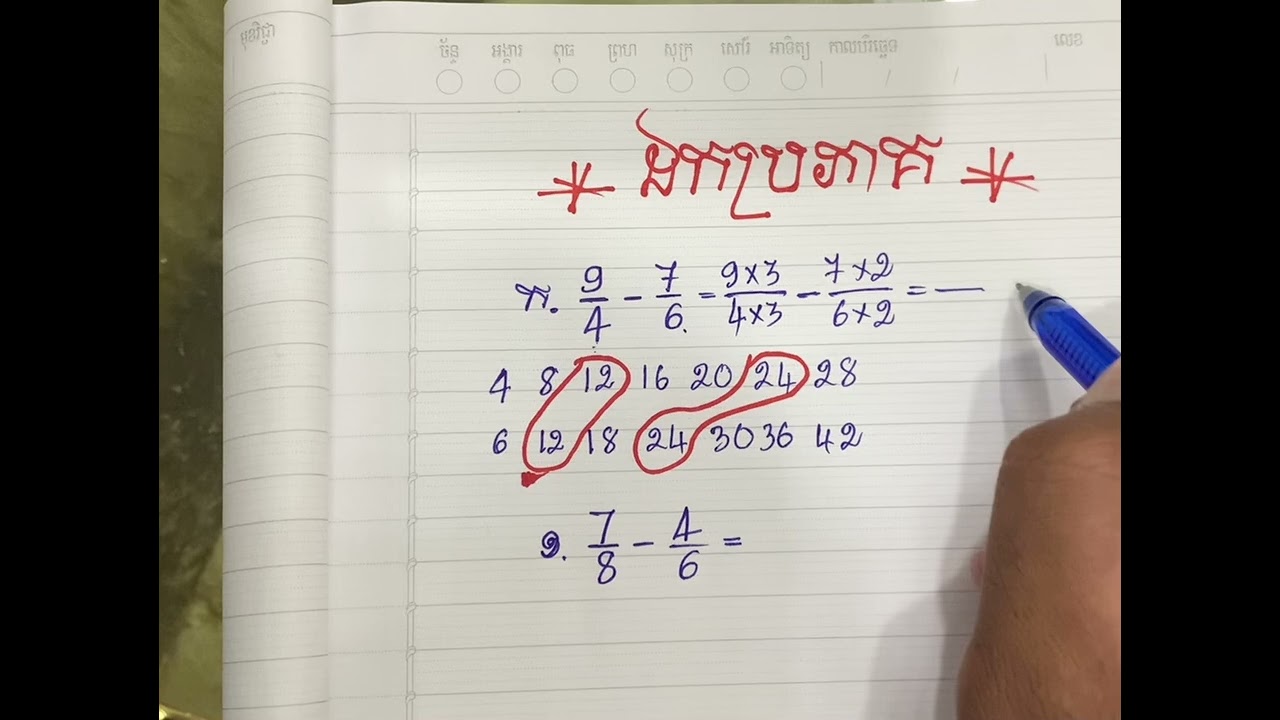 មុខវិជ្ជា
ច័ន្ទ អង្គារ ពុធ ព្រហ សុក្រ សៅរ៍ អាទិត្យ កាលបរិច្ឆេទ លេខ
* ឯកប្រភាគ *
ក. 9/4 - 7/6 = 9×3/4×3 - 7×2/6×2 = —
4 8 12 16 20 24 28
6 12 18 24 30 36 42
ខ. 7/8 - 4/6 =